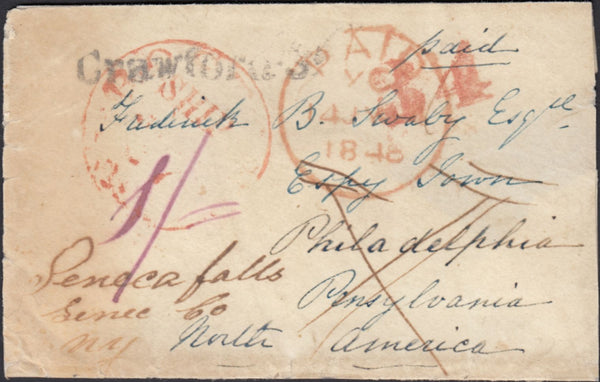 paid
Crawford St
PAID
YC
1848
34
Fredrick B. Swaby Esqre
1/-
Espy Town
Philadelphia
Pensylvania
North America
Seneca falls
Senec Co
NY